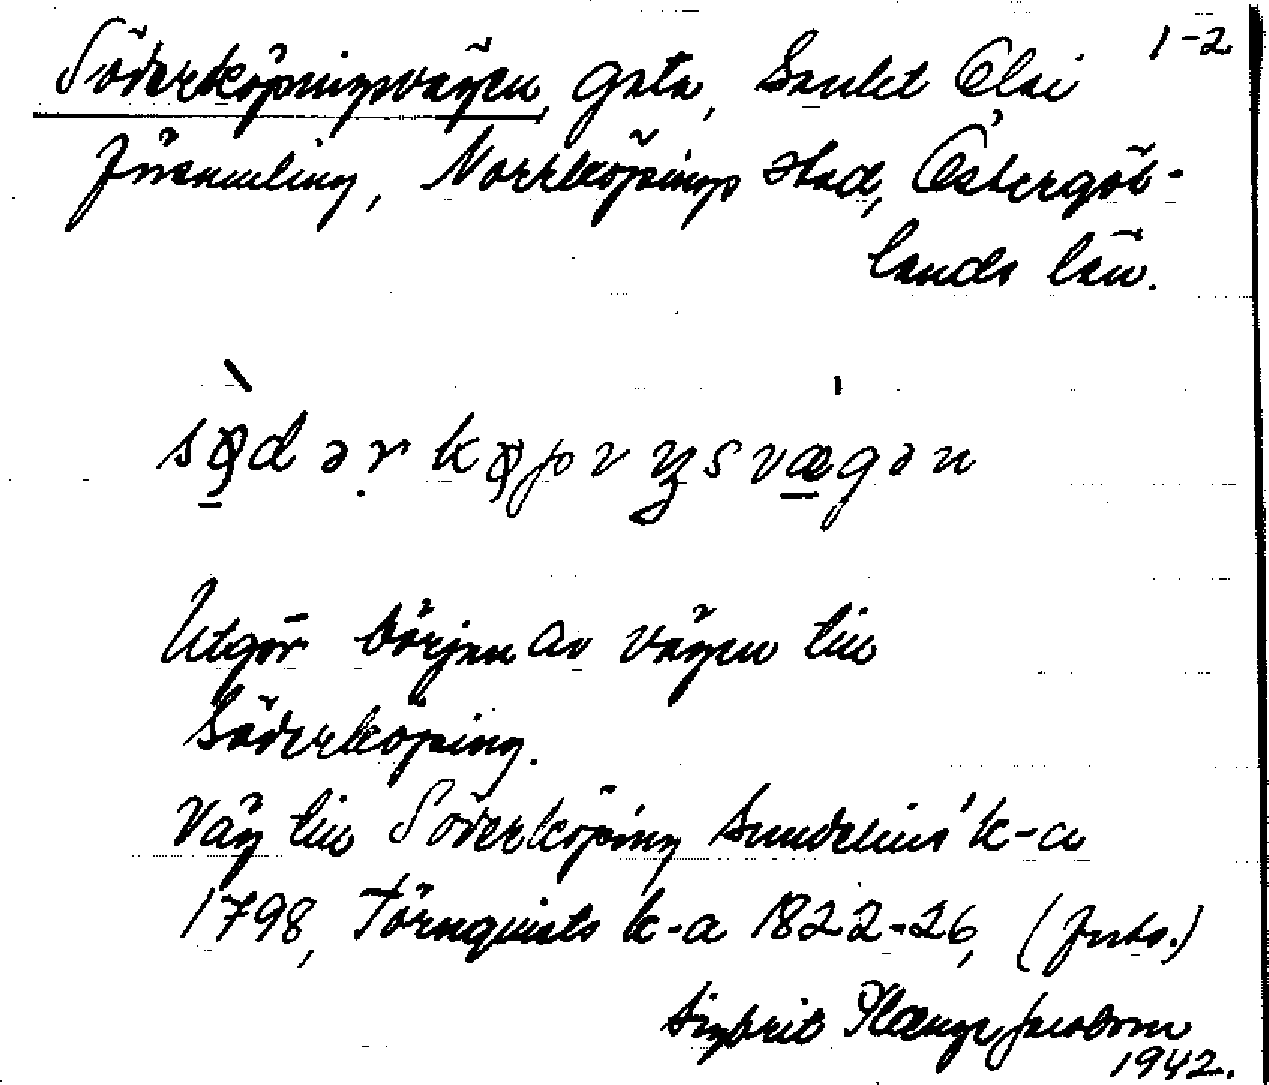 1-2
Söderköpingsvägen, gata, Sankt Olai
församling, Norrköpings stad, Östergöt-
lands län.
sødərkøpıŋsvægən
Utgör början av vägen till
Söderköping.
Väg till Söderköping Sundelius' k-a
1798, Törnquists k-a 1822-26, (forts.)
Sigbrit Plænge Jacobson
1942.